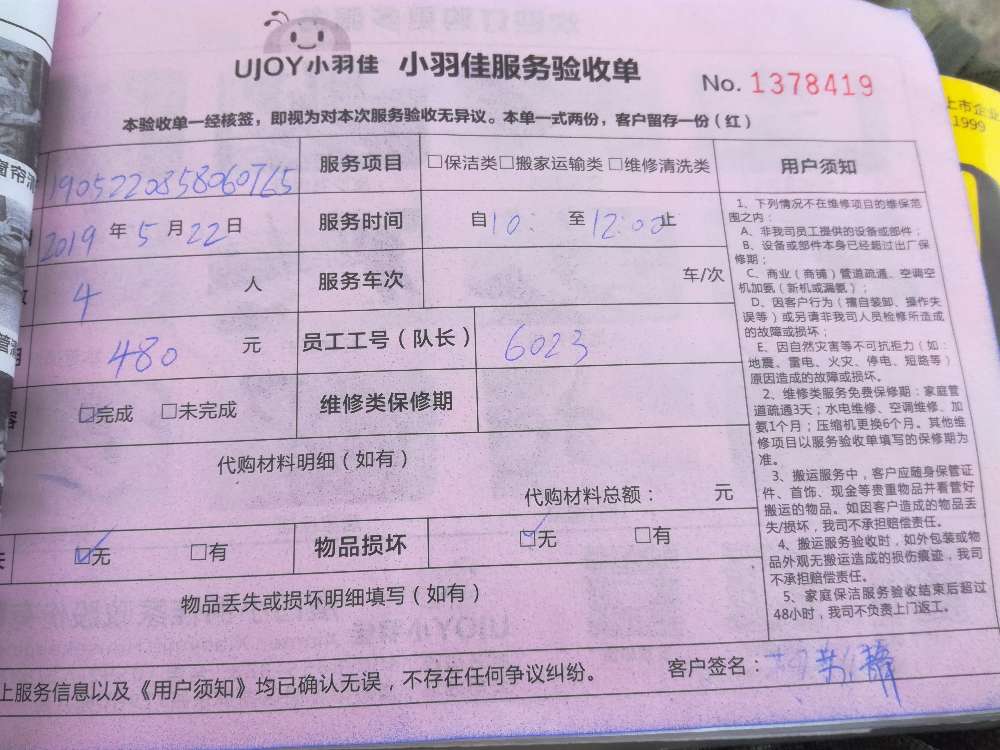 UJOY小羽佳 小羽佳服务验收单
No. 1378419
本验收单一经核签，即视为对本次服务验收无异议。本单一式两份，客户留存一份（红）
1905220858060765
服务项目
□保洁类□搬家运输类 □维修清洗类
2019 年 5 月 22 日
服务时间
自 10: 至 12:00 止
4 人
服务车次
车/次
480 元
员工工号（队长）
6023
□完成 □未完成
维修类保修期
代购材料明细（如有）
代购材料总额： 元
☑无 □有
物品损坏
☑无 □有
物品丢失或损坏明细填写（如有）
上服务信息以及《用户须知》均已确认无误，不存在任何争议纠纷。
客户签名：
用户须知
1、下列情况不在维修项目的维保范
围之内：
A、非我司员工提供的设备或部件；
B、设备或部件本身已经超过出厂保
修期；
C、商业（商铺）管道疏通、空调空
机加氨（新机或漏氨）；
D、因客户行为（擅自装卸、操作失
误等）或另请非我司人员检修所造成
的故障或损坏；
E、因自然灾害等不可抗拒力（如：
地震、雷电、火灾、停电、短路等）
原因造成的故障或损坏。
2、维修类服务免费保修期：家庭管
道疏通3天；水电维修、空调维修、加
氨1个月；压缩机更换6个月。其他维
修项目以服务验收单填写的保修期为
准。
3、搬运服务中，客户应随身保管证
件、首饰、现金等贵重物品并看管好
搬运的物品。如因客户造成的物品丢
失/损坏，我司不承担赔偿责任。
4、搬运服务验收时，如外包装或物
品外观无搬运造成的损伤痕迹，我司
不承担赔偿责任。
5、家庭保洁服务验收结束后超过
48小时，我司不负责上门返工。
上市企业
1999